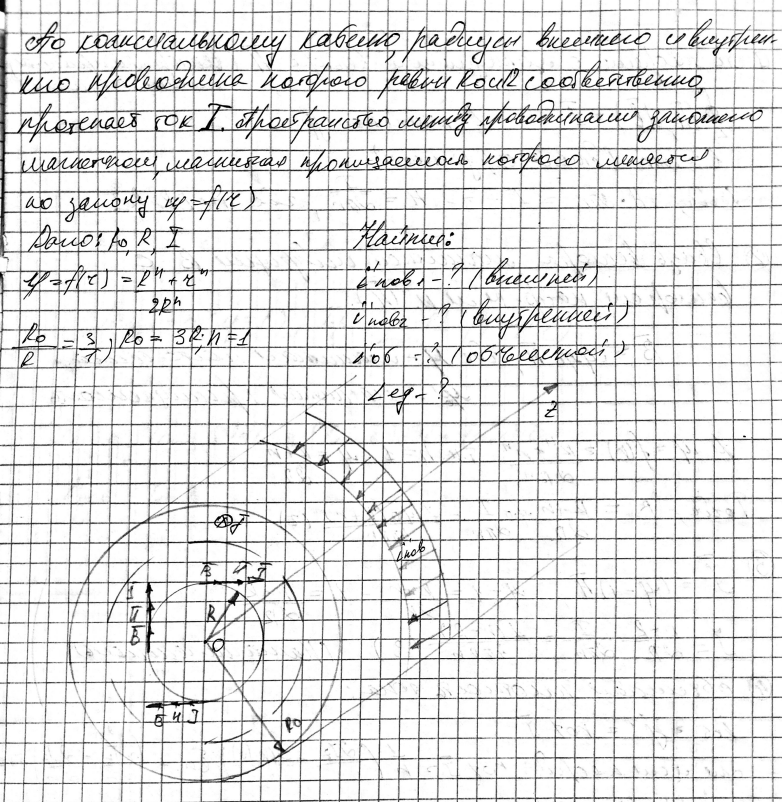 По коаксиальному кабелю, радиусы внешнего и внутрен-
него проводника которого равны Ro и R соответственно,
протекает ток I. Пространство между проводниками заполнено
магнетиком, магнитная проницаемость которого меняется
по закону μ=f(r)
Дано: Ro, R, I
Найти:
μ=f(r)=(Rⁿ+rⁿ)/(2Rⁿ)
i'пов1 - ? (внешней)
i'пов2 - ? (внутренней)
Ro/R = 3/1; Ro = 3R; n=1
i'об - ? (объемной)
Lед - ?
Z
I
i'пов
B H J
J
H
B
R
O
B H J
Ro